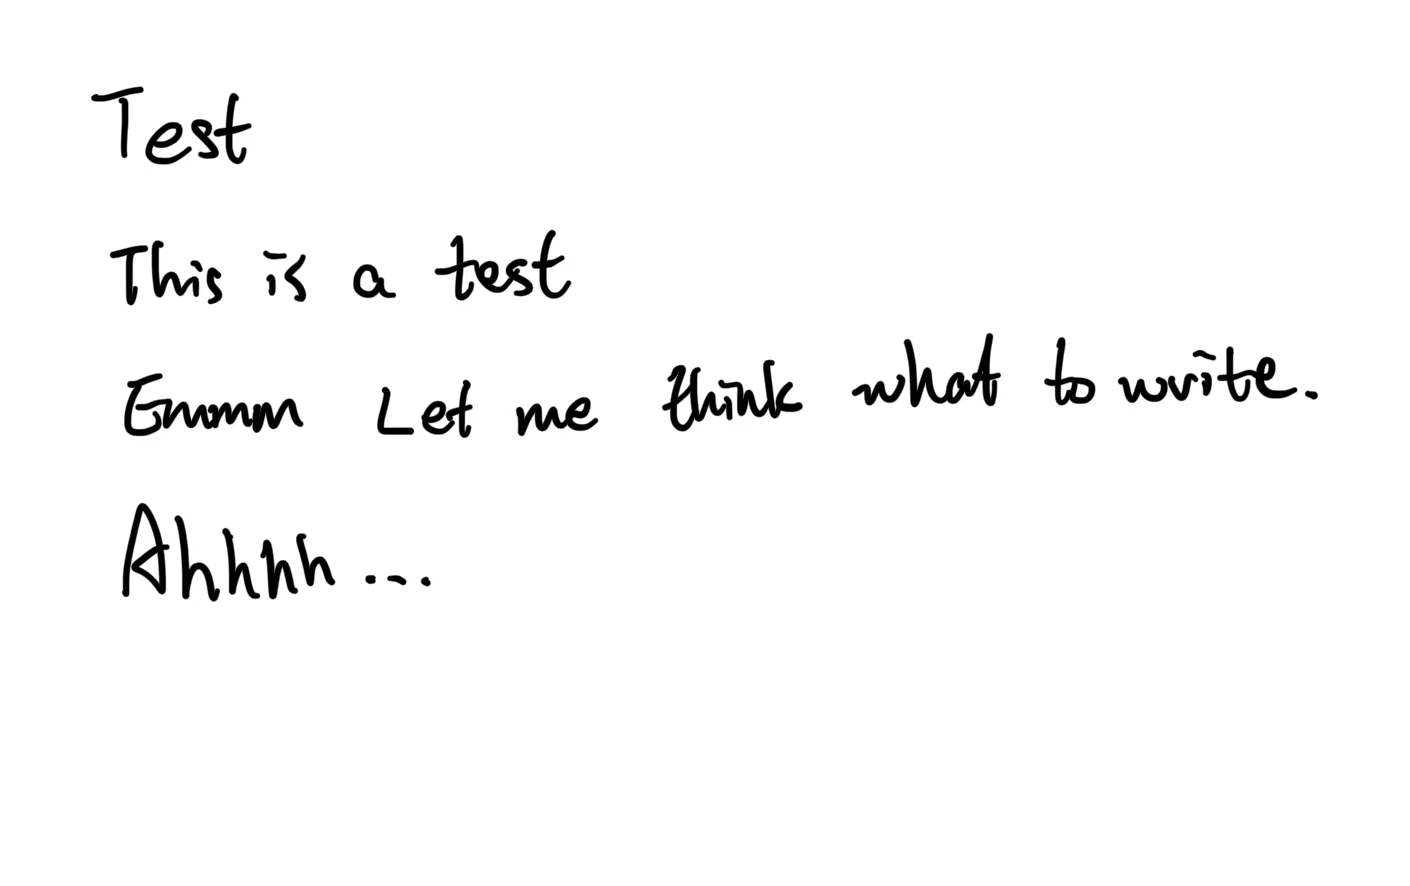 Test
This is a test
Emmm Let me think what to write.
Ahhhh...